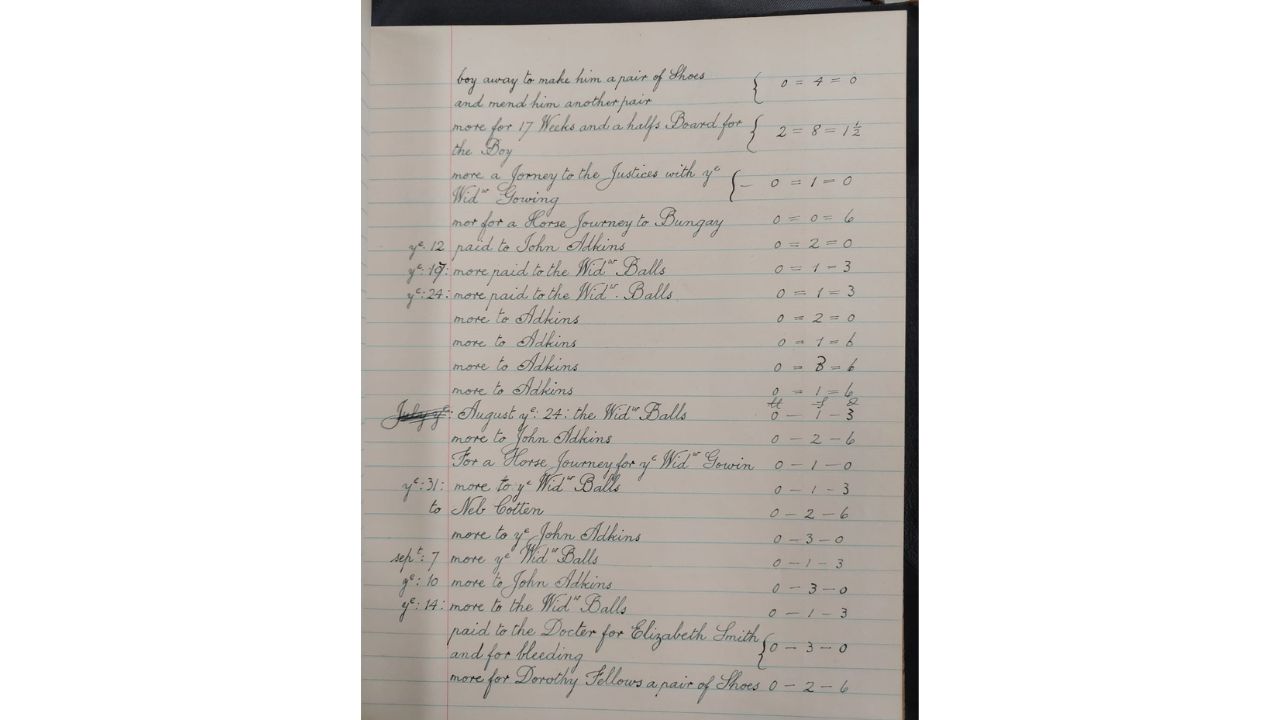 boy away to make him a pair of Shoes
and mend him another pair { 0 = 4 = 0
more for 17 Weeks and a halfs Board for
the Boy { 2 = 8 = 1½
more a Jorney to the Justices with yᵉ
Widʷ Gowing {- 0 = 1 = 0
mor for a Horse Journey to Bungay 0 = 0 = 6
yᵉ: 12 paid to John Adkins 0 = 2 = 0
yᵉ: 19: more paid to the Widʷ Balls 0 = 1 - 3
yᵉ: 24: more paid to the Widʷ. Balls 0 = 1 = 3
more to Adkins 0 = 2 = 0
more to Adkins 0 = 1 = 6
more to Adkins 0 = 3 = 6
more to Adkins 0 = 1 = 6
July yᵉ: August yᵉ: 24: the Widʷ Balls 0 - 1 - 3
more to John Adkins 0 - 2 - 6
For a Horse Journey for yᵉ Widʷ Gowin 0 - 1 - 0
yᵉ: 31: more to yᵉ Widʷ Balls 0 - 1 - 3
to Neb Cotten 0 - 2 - 6
more to yᵉ John Adkins 0 - 3 - 0
sepᵗ: 7 more yᵉ Widʷ Balls 0 - 1 - 3
yᵉ: 10 more to John Adkins 0 - 3 - 0
yᵉ: 14: more to the Widʷ Balls 0 - 1 - 3
paid to the Docter for Elizabeth Smith
and for bleeding { 0 - 3 - 0
more for Dorothy Fellows a pair of Shoes 0 - 2 - 6